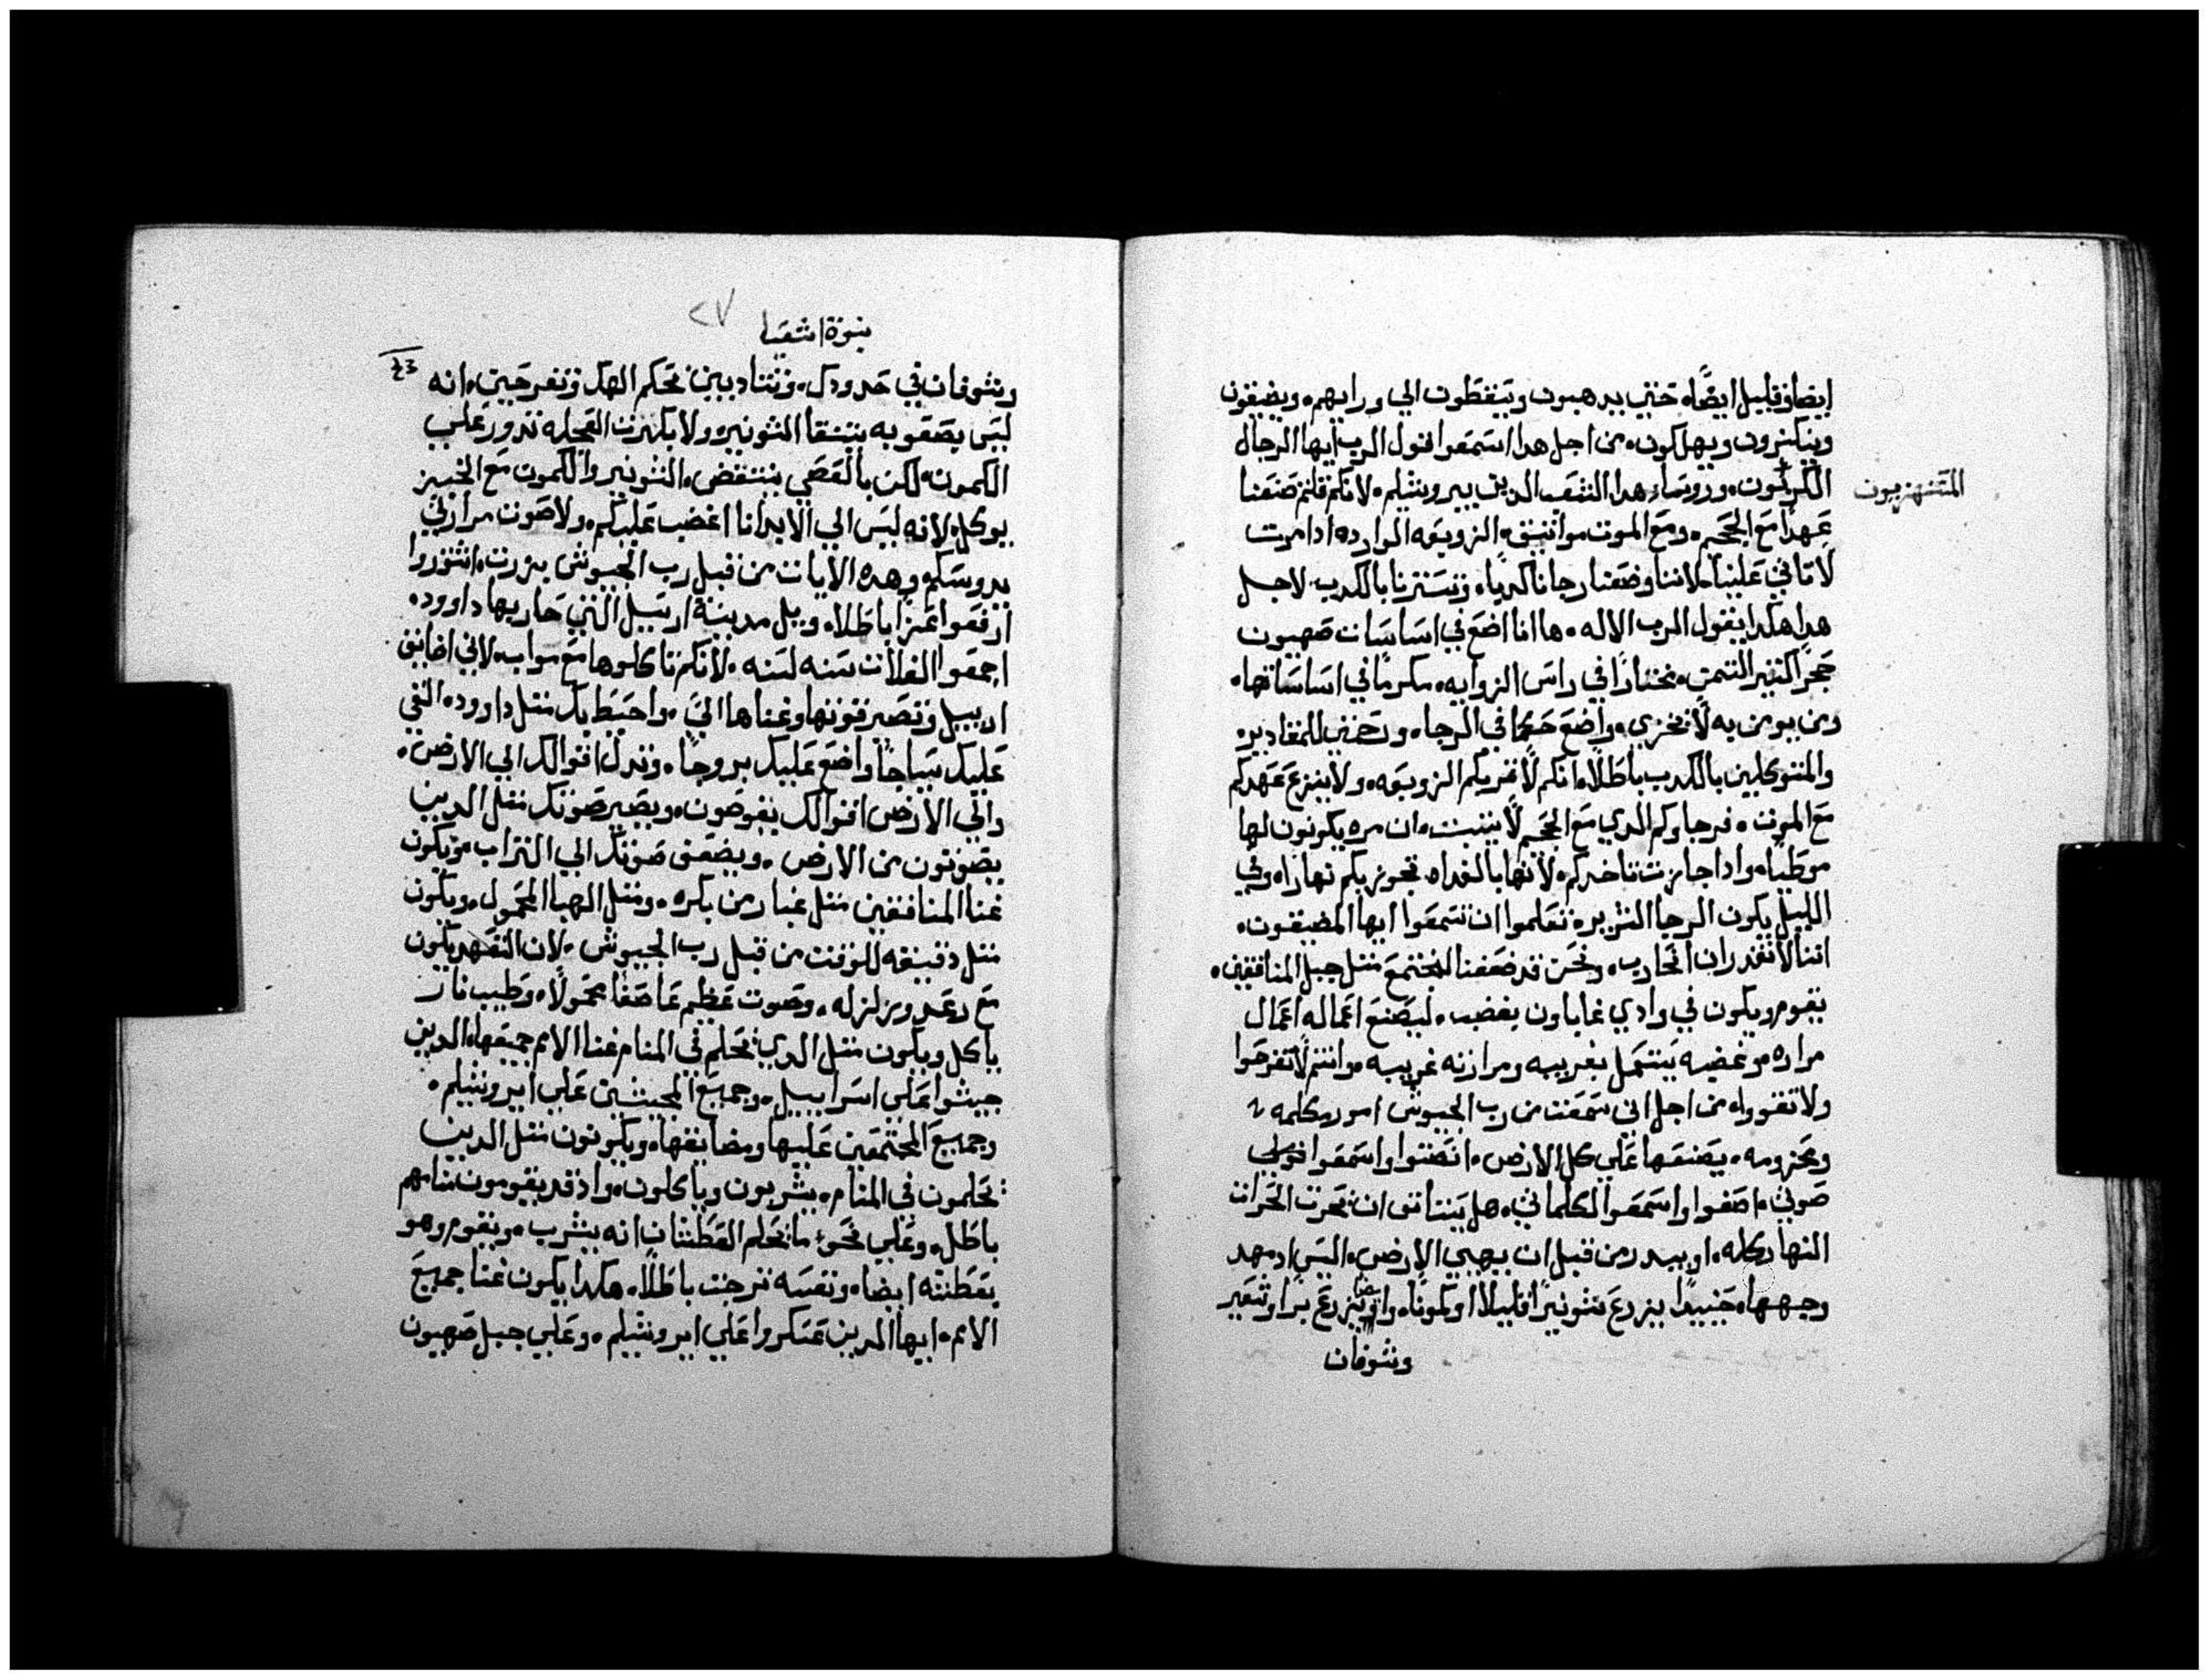 ايضا وقليل ايضًا، حتي يدهبون ويتفطون الي ورايهم، ويضيقون
وينكسرون ويهلكون، من اجل هدا اسمعوا قول الرب ايها الرجال
المستهزيون
ورووساء هدا الشعب الدين بيروشليم، لانكم قلتم صنعنا
عهدًا مع الجحيم، ومع الموت مواتيق، الزوبعه الوارده ادا مرت
لا تاتي علينا، لاننا وضعنا رجانا كدبًا، وتسترنا بالكدب لاجل
هدا هكدا يقول الرب الاله، ها انا اضع في اساسات صهيون
حجر الكتير التمن، مختارًا في راس الزوايه، مكرمًا في اساساتها،
ومن يومن به لا يخزي، واضع حكمًا في الرجا، ورحمتي للمقادير،
والمتوكلين بالكدب باطلًا، انكم لا تمر بكم الزوبعه، ولا ينزع عهدكم
مع الموت، فرجاوكم الدي مع الجحيم لا يتبت، ان مره يكونون لها
موطيًا، وادا جازت تاخدكم، لانها بالغداه تجوز بكم نهارًا، وفي
الليل يكون الرجا الشرير، تعلموا ان تسمعوا ايها المضيقون،
اننا لا نقدر ان نحارب، ونحن قد ضعفنا لنجتمع، متل جبل المنافقين،
يقوم ويكون في وادي غاباون بغضب، ليصنع اعماله اعمال
مراره، وغضبه يستعمل بغريبه ومرارته غريبه، وانتم لا تفرحوا
ولا تقووا، من اجل اني سمعت من رب الجيوش امور مكلمه
ومجزومه، يصنعها علي كل الارض، انصتوا واسمعوا قولي
صوتي، اصغوا واسمعوا لكلماتي، هل يستاني ان يحرت الحرات
النهار كله، او يبدر من قبل ان يهيي الارض، اليس اد مهد
وجهها، حنييدًا يزرع شونيزًا قليلا او كمونًا، وايضا يزرع برا وشعير
وشوفان
نبوة اشعيا
٢٧
وشوفان في حدودك، وتتادب بين بحكم الهك وتفرح بين، انه
ليس بصعوبه ينتقا الشونيز، ولا بكرت العجله تدور علي
الكمون، لكن بالعصي ينتفض، الشونيز والكمون مع الخبز
يوكل، لانه ليس الي الابد انا اغضب عليكم، ولا صوت مرارتي
يدوسكم، وهده الايات من قبل رب الجيوش برزت، اشوروا
ارفعوا عزًا باطلا، ويل مدينة ارييل التي حاربها داوود،
اجمعوا الغلات سنه لسنه، لانكم تاكلوها مع مواب، لاني اضايق
ارييل وتصير قوتها وغناها الي، واحيط بك متل داوود، القي
عليك سياجًا واضع عليك بروجًا، وتدل اقوالك الي الارض،
والي الارض اقوالك يغوصون، ويصير صوتك متل الدين
يصوتون من الارض، ويضعف صوتك الي التراب، ويكون
غنا المنافقين متل غبار من بكره، ومتل الهبا المحمول، ويكون
متل دقيقه للوقت من قبل رب الجيوش، لان التعهد يكون
مع رعد وزلزله، وصوت عظيم عاصفًا محمولًا، ولهيب نار
ياكل ويكون متل الدي يحلم في المنام غنا الامم جميعها، الدين
جيشوا علي اسراييل، وجميع المجيشين علي ايروشليم،
وجميع المجتمعين عليها ومضايقها، ويكونون متل الدين
يحلمون في المنام، يشربون وياكلون، واد قد يقومون منامهم
باطل، وعلي نحو ما يحلم العطشان انه يشرب، ويقوم وهو
بعطشه ايضا، ونفسه ترجت باطلًا، هكدا يكون غنا جميع
الامم، ايها الدين عسكروا علي ايروشليم، وعلي جبل صهيون